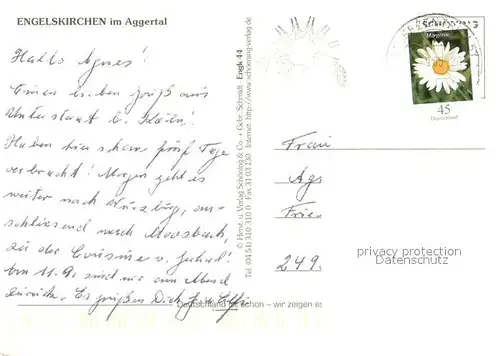 ENGELSKIRCHEN im Aggertal
Hallo Agnes!
Einen lieben Gruß aus
bei Köln!
Haben hier schon fünf Tage
verbracht! Morgen geht es
weiter nach Würzburg, an-
schliessend nach Moosbach,
zu der Cousine u.
Am 11.9. sind wir am Abend
zurück. Es grüßen Dich
© Herst. u. Verlag Schöning & Co. + Gebr. Schmidt
Tel. (04 51) 310 310 0 Fax 31 03 130 Internet: http://www.schoening-verlag.de
Engk 44
Deutschland ist schön – wir zeigen es
Margerite
45
Deutschland
Frau
Ag
Frie
249.
privacy protection
Datenschutz